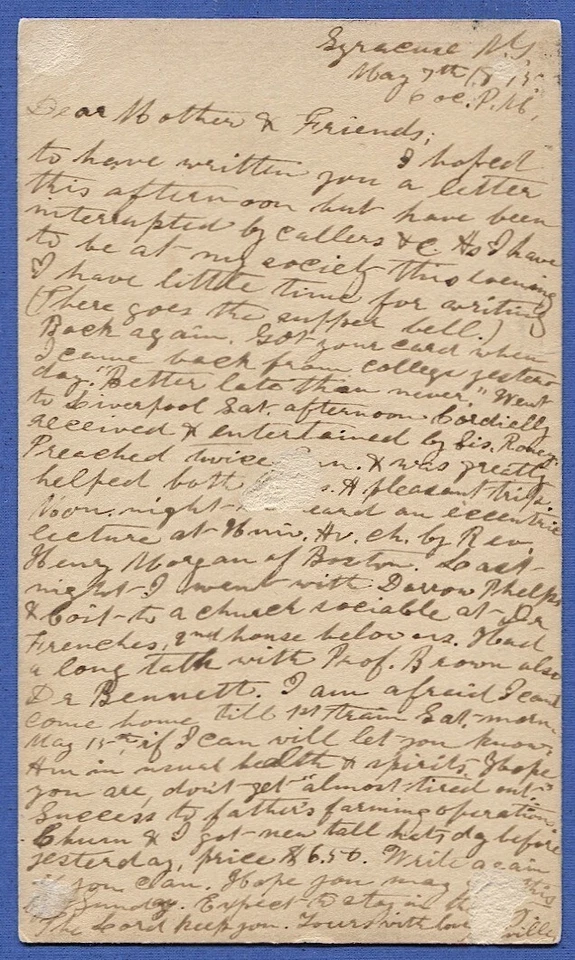 Syracuse N.Y.
May 7th
6 oc. P.M.
Dear Mother & Friends;
I hoped
to have written you a letter
this afternoon but have been
interrupted by callers &c. As I have
to be at my society this evening
I have little time for writing
(There goes the supper bell.)
Back again. Got your card when
I came back from college yester
day. "Better late than never." Went
to Liverpool Sat. afternoon Cordially
received & entertained by Sis.
Preached twice & was greatly
helped both A pleasant trip.
Mon. night an eccentric
lecture at Univ. Av. ch. by Rev.
Henry Morgan of Boston. Last
night I went with Darrow Phelps
& Coit to a church sociable at Dr
Frenches, 2nd house below us. Had
a long talk with Prof. Brown also
Dr Bennett. I am afraid I cant
come home till 1st train Sat. morn.
May 15th, if I can will let you know.
Am in usual health & spirits. Hope
you are, don't get "almost tired out"
Success to father's farming operations.
Church & I got new tall hats day before
yesterday, price $6.50. Write again
if you can. Hope you may
Sunday. Expect to stay in
The Lord keep you. Yours with love